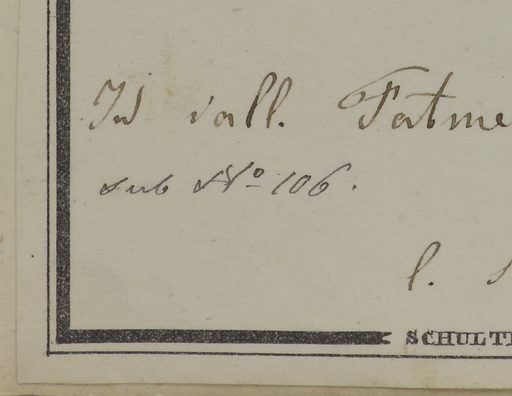 In vall. Fatme
sub No. 106.
l.
SCHULT